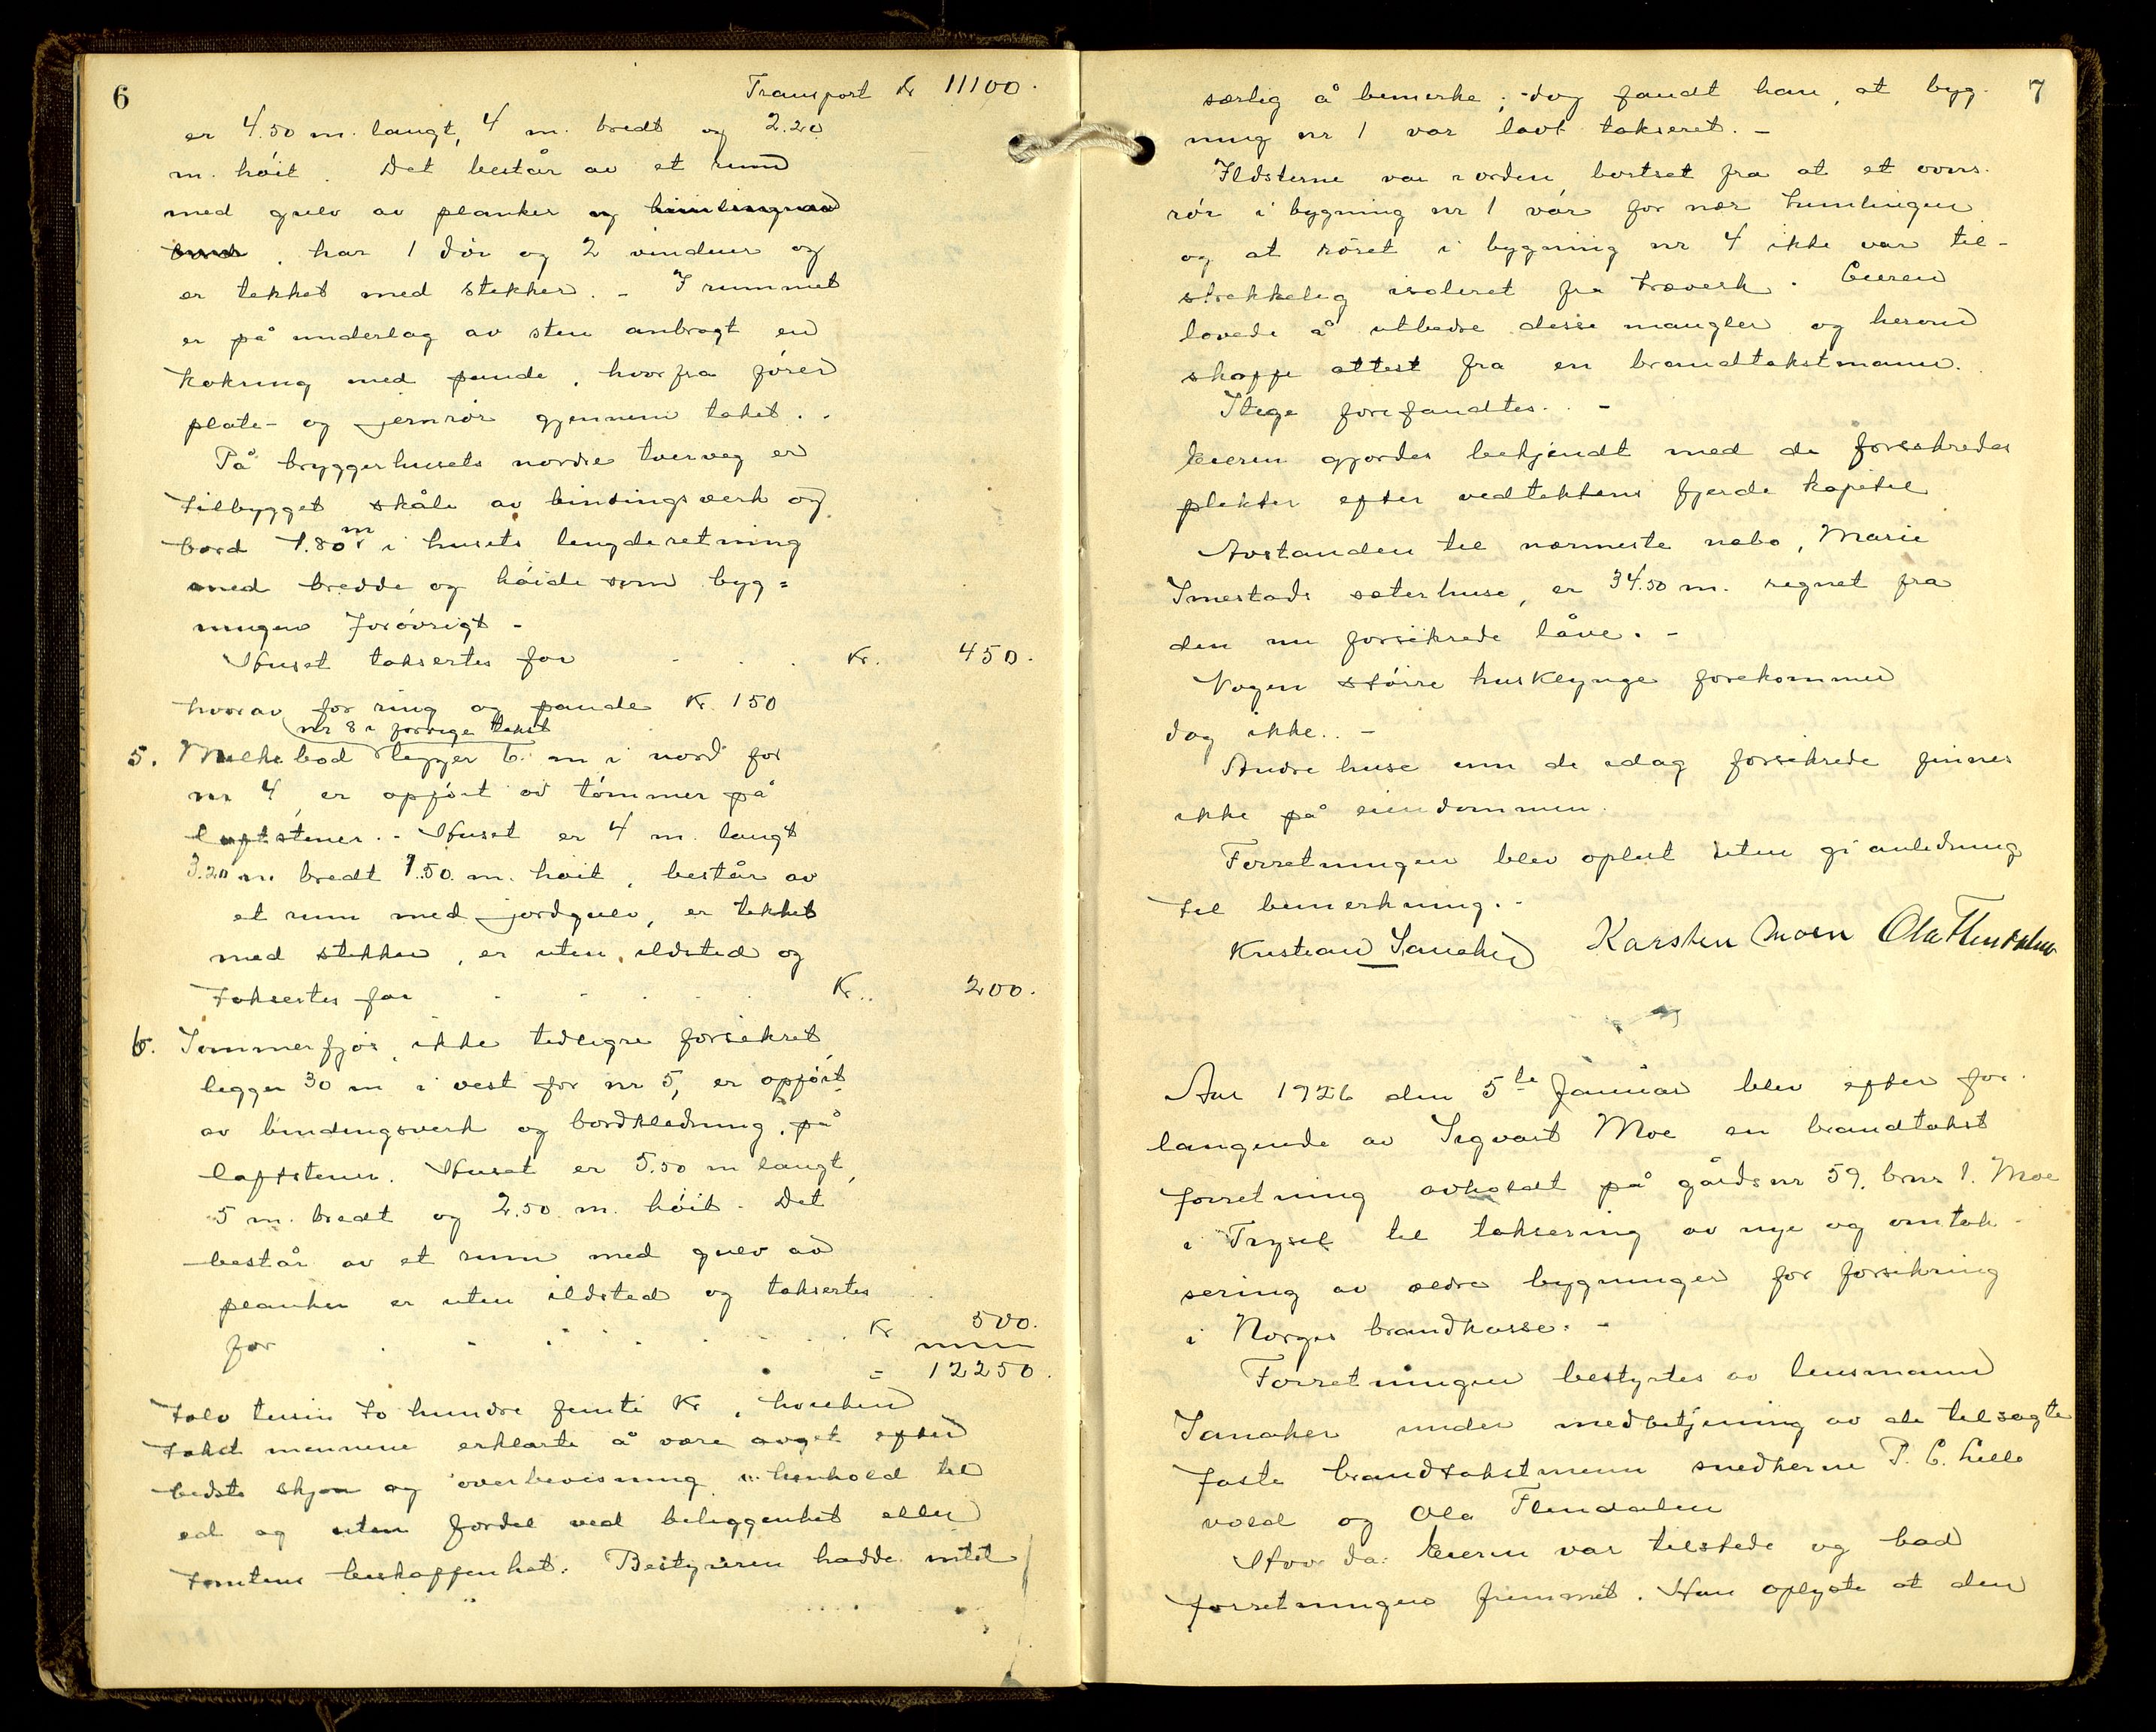 6
Transport Kr 11100.
er 4.50 m. langt, 4 m. bredt og 2.20
m. høit. Det består av et rum
med gulv av planker og himling av
bord, har 1 dør og 2 vinduer og
er tekket med stikker. - I rummet
er på underlag av sten anbragt en
kokring med pande, hvorfra fører
plate- og jernrør gjennem taket. -
På bryggerhusets nordre tverveg er
tilbygget skåle av bindingsverk og
bord 1.80 m i husets lengderetning
med bredde og høide som byg=
ningen forøvrigt -
Huset takseres for - . . Kr. 450.
hvorav for ring og pande Kr. 150
nr 8 i forrige takst
5. Melkebod ligger 6. m i nord for
nr 4 er opført av tømmer på
laftstener. - Huset er 4 m. langt
3.20 m. bredt 1.50. m. høit, består av
et rum med jordgulv, er tekket
med stikker, er uten ildsted og
takseres for - - . . . Kr.. 200.
6. Sommerfjøs, ikke tidligre forsikret
ligger 30 m i vest for nr 5, er opført
av bindingsverk og bordkledning, på
laftstener. Huset er 5.50 m langt,
5 m. bredt og 2.50 m. høit. Det
består av et rum med gulv av
planker er uten ildsted og takseres
for . - . . . . . . Kr 500.
= 12250.
Tolv tusin to hundre femti Kr, hvilken
takst mennene erklærte å være avget efter
bedste skjøn og overbevisning i henhold til
ed og uten fordel ved beliggenhet eller
tomtens beskaffenhet. Bestyreren hadde intet
7
særlig å bemerke; dog fandt han, at byg-
ning nr 1 var lavt takseret. -
Ildstederne var i orden, bortset fra at et ovns-
rør i bygning nr 1 var for nær himlingen
og at røret i bygning nr 4 ikke var til-
strekkelig isoleret fra treverk. Eieren
lovede å utbedre desse mangler og herom
skaffe attest fra en brandtakstmann.
Stige forefandtes. -
Eieren gjordes bekjendt med de forsikredes
plikter efter vedtektens fjerde kapitel
Avstanden til nærmeste nabo, Marie
Smestads seterhuse, er 34.50 m. regnet fra
den nu forsikrede låve. -
Nogen større husklynge forekommer
dog ikke.. -
Andre huse enn de idag forsikrede finnes
ikke på eiendommen.
Forretningen blev oplæst uten gi anledning
til bemerkning. -
Kristian Sanaker Karsten Moen Ola Flendalen
Aar 1926 den 5te Januar blev efter for-
langende av Sigvart Moe en brandtakst
forretning avholdt på gårdsnr 59. brnr 1. Moe
i Trysil til taksering av nye og omtak-
sering av ældre bygninger for forsikring
i Norges brandkasse. -
Forretningen bestyrtes av lensmann
Sanaker under medbetjening av de tilsagte
faste brandtakstmenn snedkerne P. C. Lille
vold og Ola Flendalen
Hvor da: Eieren var tilstede og bad
forretningen fremmet. Han oplyste at den